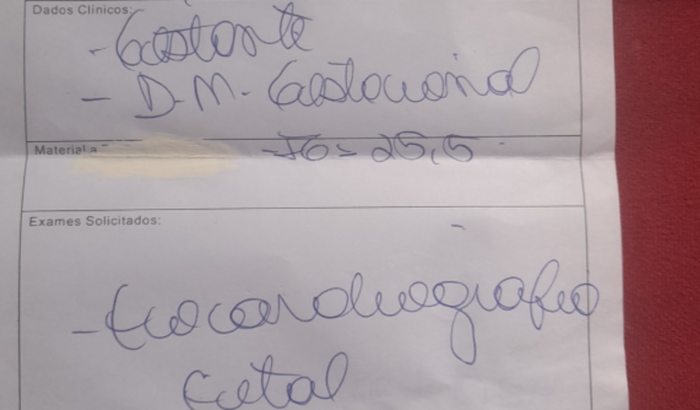 Dados Clínicos:
- Gestante
- D.M. Gestacional
Material a
- IG = 25,5
Exames Solicitados:
- Ecocardiografia
Fetal